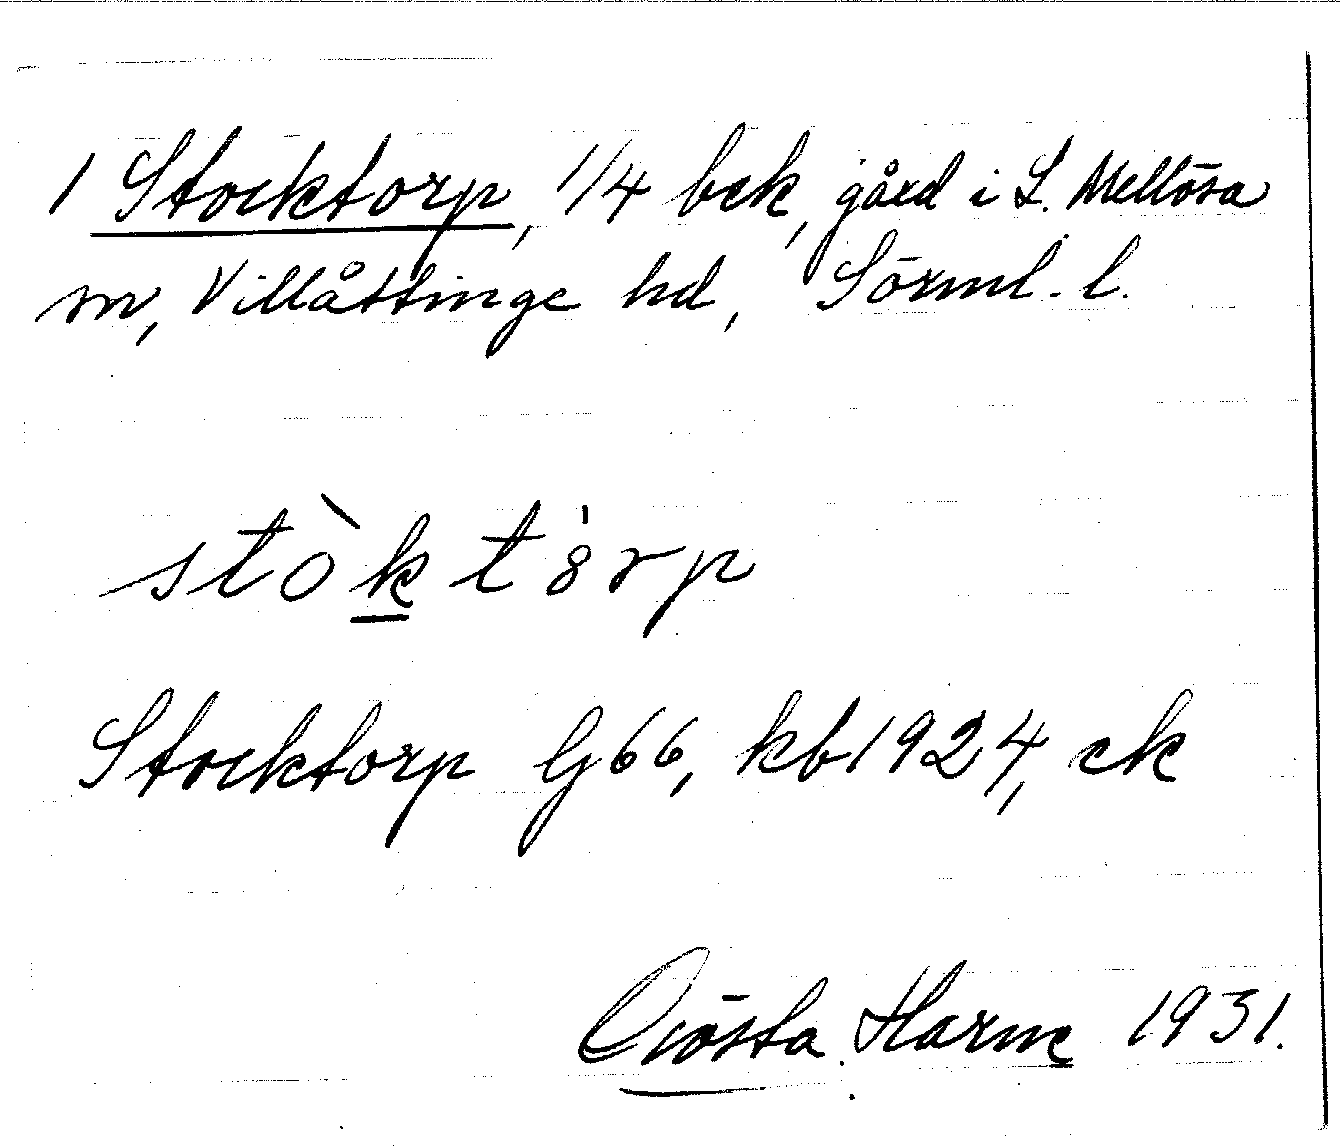 1 Stocktorp, 1/4 bck, gård i L. Mellösa
sn, Villåttinge hd, Sörml. l.
stòktȯrp
Stocktorp G66, kb1924, ck
Gösta Harne 1931.